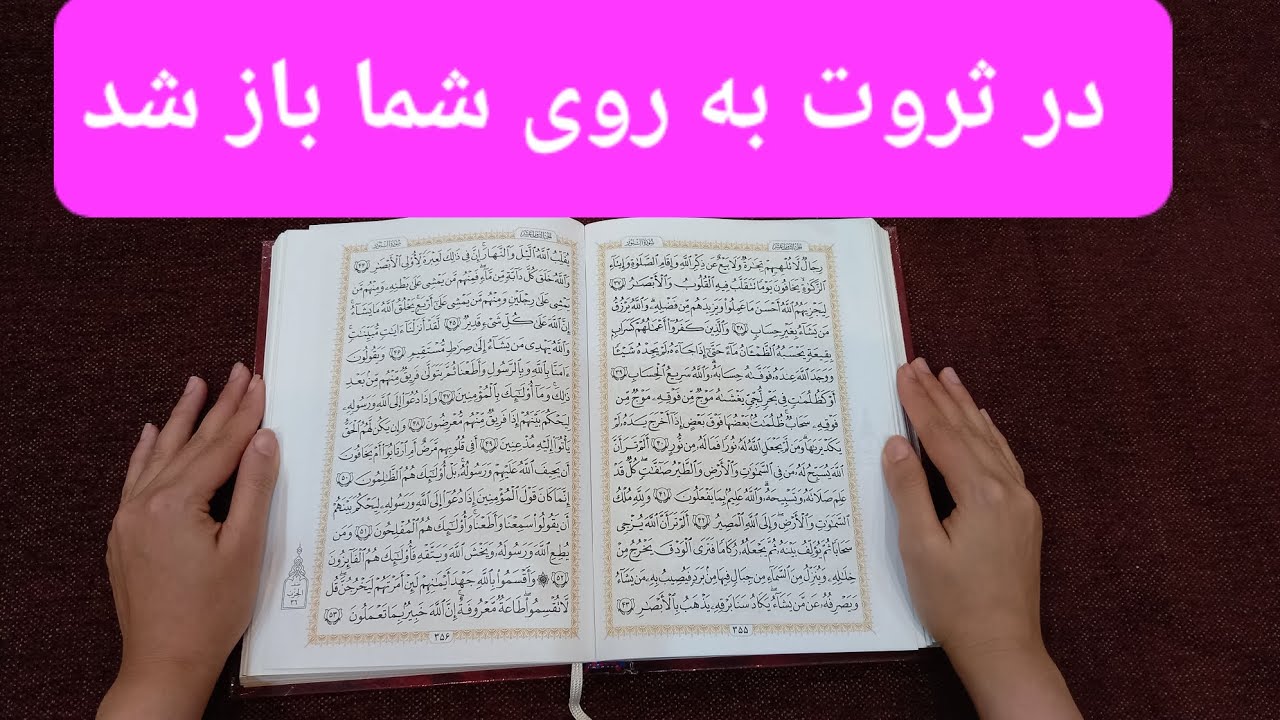 در ثروت به روی شما باز شد
الجزء الثامن عشر سورة النور
رِجَالٌ لَّا تُلْهِيهِمْ تِجَٰرَةٌ وَلَا بَيْعٌ عَن ذِكْرِ ٱللَّهِ وَإِقَامِ ٱلصَّلَوٰةِ وَإِيتَآءِ
ٱلزَّكَوٰةِ يَخَافُونَ يَوْمًا تَتَقَلَّبُ فِيهِ ٱلْقُلُوبُ وَٱلْأَبْصَٰرُ ﴿٣٧﴾
لِيَجْزِيَهُمُ ٱللَّهُ أَحْسَنَ مَا عَمِلُوا۟ وَيَزِيدَهُم مِّن فَضْلِهِۦ وَٱللَّهُ يَرْزُقُ
مَن يَشَآءُ بِغَيْرِ حِسَابٍ ﴿٣٨﴾ وَٱلَّذِينَ كَفَرُوٓا۟ أَعْمَٰلُهُمْ كَسَرَابٍ
بِقِيعَةٍ يَحْسَبُهُ ٱلظَّمْـَٔانُ مَآءً حَتَّىٰٓ إِذَا جَآءَهُۥ لَمْ يَجِدْهُ شَيْـًٔا
وَوَجَدَ ٱللَّهَ عِندَهُۥ فَوَفَّىٰهُ حِسَابَهُۥ وَٱللَّهُ سَرِيعُ ٱلْحِسَابِ ﴿٣٩﴾
أَوْ كَظُلُمَٰتٍ فِى بَحْرٍ لُّجِّىٍّ يَغْشَىٰهُ مَوْجٌ مِّن فَوْقِهِۦ مَوْجٌ مِّن
فَوْقِهِۦ سَحَابٌ ظُلُمَٰتٌۢ بَعْضُهَا فَوْقَ بَعْضٍ إِذَآ أَخْرَجَ يَدَهُۥ لَمْ
يَكَدْ يَرَىٰهَا وَمَن لَّمْ يَجْعَلِ ٱللَّهُ لَهُۥ نُورًا فَمَا لَهُۥ مِن نُّورٍ ﴿٤٠﴾ أَلَمْ تَرَ أَنَّ
ٱللَّهَ يُسَبِّحُ لَهُۥ مَن فِى ٱلسَّمَٰوَٰتِ وَٱلْأَرْضِ وَٱلطَّيْرُ صَٰٓفَّٰتٍ كُلٌّ قَدْ
عَلِمَ صَلَاتَهُۥ وَتَسْبِيحَهُۥ وَٱللَّهُ عَلِيمٌۢ بِمَا يَفْعَلُونَ ﴿٤١﴾ وَلِلَّهِ مُلْكُ
ٱلسَّمَٰوَٰتِ وَٱلْأَرْضِ وَإِلَى ٱللَّهِ ٱلْمَصِيرُ ﴿٤٢﴾ أَلَمْ تَرَ أَنَّ ٱللَّهَ يُزْجِى
سَحَابًا ثُمَّ يُؤَلِّفُ بَيْنَهُۥ ثُمَّ يَجْعَلُهُۥ رُكَامًا فَتَرَى ٱلْوَدْقَ يَخْرُجُ مِنْ
خِلَٰلِهِۦ وَيُنَزِّلُ مِنَ ٱلسَّمَآءِ مِن جِبَالٍ فِيهَا مِنۢ بَرَدٍ فَيُصِيبُ بِهِۦ مَن يَشَآءُ
وَيَصْرِفُهُۥ عَن مَّن يَشَآءُ يَكَادُ سَنَا بَرْقِهِۦ يَذْهَبُ بِٱلْأَبْصَٰرِ ﴿٤٣﴾
٣٥٥
الجزء الثامن عشر سورة النور
يُقَلِّبُ ٱللَّهُ ٱلَّيْلَ وَٱلنَّهَارَ إِنَّ فِى ذَٰلِكَ لَعِبْرَةً لِّأُو۟لِى ٱلْأَبْصَٰرِ ﴿٤٤﴾
وَٱللَّهُ خَلَقَ كُلَّ دَآبَّةٍ مِّن مَّآءٍ فَمِنْهُم مَّن يَمْشِى عَلَىٰ بَطْنِهِۦ وَمِنْهُم مَّن
يَمْشِى عَلَىٰ رِجْلَيْنِ وَمِنْهُم مَّن يَمْشِى عَلَىٰٓ أَرْبَعٍ يَخْلُقُ ٱللَّهُ مَا يَشَآءُ
إِنَّ ٱللَّهَ عَلَىٰ كُلِّ شَىْءٍ قَدِيرٌ ﴿٤٥﴾ لَّقَدْ أَنزَلْنَآ ءَايَٰتٍ مُّبَيِّنَٰتٍ
وَٱللَّهُ يَهْدِى مَن يَشَآءُ إِلَىٰ صِرَٰطٍ مُّسْتَقِيمٍ ﴿٤٦﴾ وَيَقُولُونَ
ءَامَنَّا بِٱللَّهِ وَبِٱلرَّسُولِ وَأَطَعْنَا ثُمَّ يَتَوَلَّىٰ فَرِيقٌ مِّنْهُم مِّنۢ بَعْدِ
ذَٰلِكَ وَمَآ أُو۟لَٰٓئِكَ بِٱلْمُؤْمِنِينَ ﴿٤٧﴾ وَإِذَا دُعُوٓا۟ إِلَى ٱللَّهِ وَرَسُولِهِۦ
لِيَحْكُمَ بَيْنَهُمْ إِذَا فَرِيقٌ مِّنْهُم مُّعْرِضُونَ ﴿٤٨﴾ وَإِن يَكُن لَّهُمُ ٱلْحَقُّ
يَأْتُوٓا۟ إِلَيْهِ مُذْعِنِينَ ﴿٤٩﴾ أَفِى قُلُوبِهِم مَّرَضٌ أَمِ ٱرْتَابُوٓا۟ أَمْ يَخَافُونَ
أَن يَحِيفَ ٱللَّهُ عَلَيْهِمْ وَرَسُولُهُۥ بَلْ أُو۟لَٰٓئِكَ هُمُ ٱلظَّٰلِمُونَ ﴿٥٠﴾
إِنَّمَا كَانَ قَوْلَ ٱلْمُؤْمِنِينَ إِذَا دُعُوٓا۟ إِلَى ٱللَّهِ وَرَسُولِهِۦ لِيَحْكُمَ بَيْنَهُمْ
أَن يَقُولُوا۟ سَمِعْنَا وَأَطَعْنَا وَأُو۟لَٰٓئِكَ هُمُ ٱلْمُفْلِحُونَ ﴿٥١﴾ وَمَن
يُطِعِ ٱللَّهَ وَرَسُولَهُۥ وَيَخْشَ ٱللَّهَ وَيَتَّقْهِ فَأُو۟لَٰٓئِكَ هُمُ ٱلْفَآئِزُونَ
﴿٥٢﴾ ۞ وَأَقْسَمُوا۟ بِٱللَّهِ جَهْدَ أَيْمَٰنِهِمْ لَئِنْ أَمَرْتَهُمْ لَيَخْرُجُنَّ قُل
لَّا تُقْسِمُوا۟ طَاعَةٌ مَّعْرُوفَةٌ إِنَّ ٱللَّهَ خَبِيرٌۢ بِمَا تَعْمَلُونَ ﴿٥٣﴾
٣٥٦
الحزب
٣٦